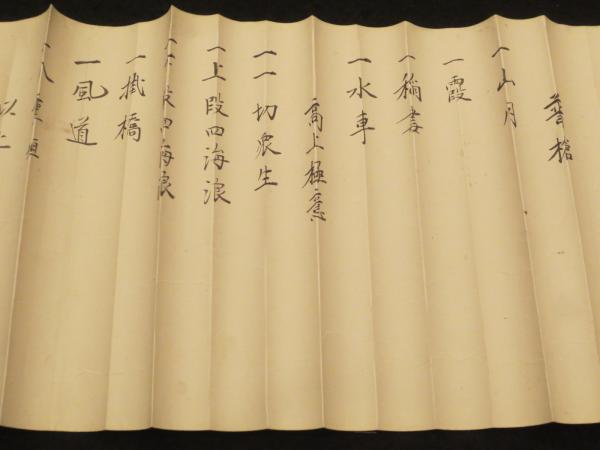 槍
一山月
一霞
一稲妻
一水車
高上極意
一一切衆生
一上段四海浪
一下段四海浪
一掛橋
一風道
一八重垣
以上